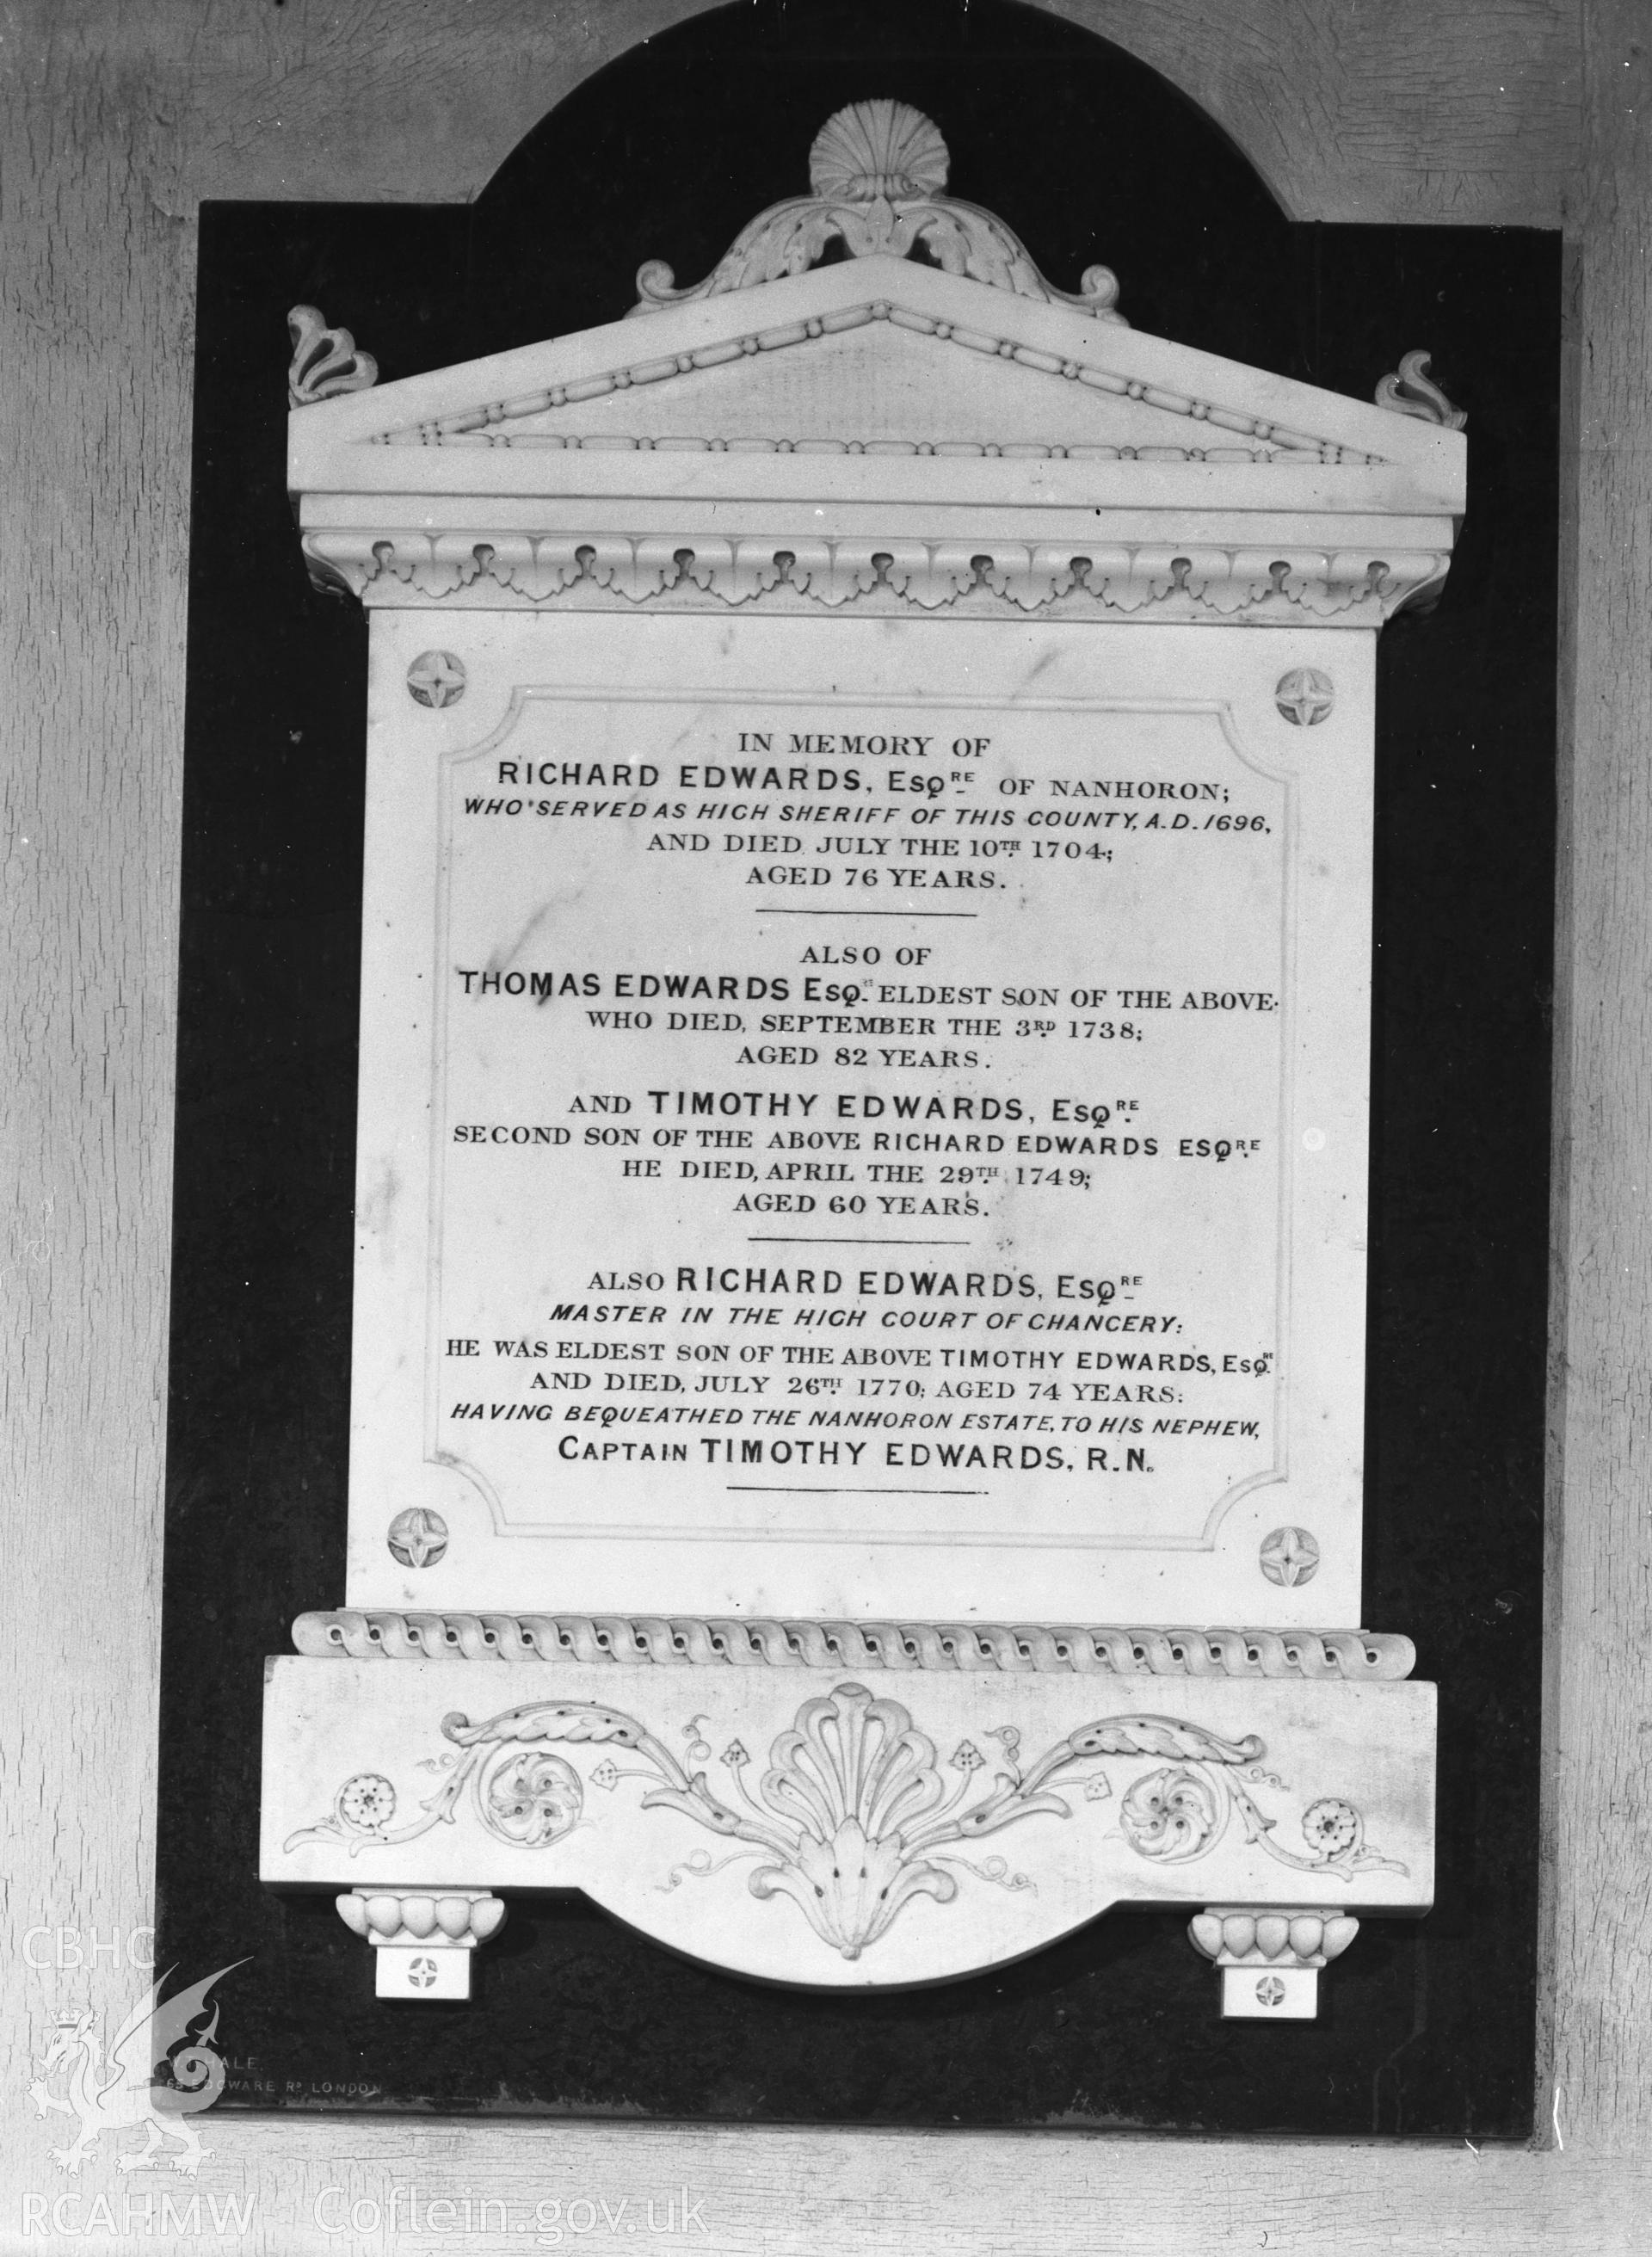 IN MEMORY OF
RICHARD EDWARDS, ESQRE OF NANHORON;
WHO SERVED AS HIGH SHERIFF OF THIS COUNTY, A.D. 1696,
AND DIED JULY THE 10TH 1704;
AGED 76 YEARS.
ALSO OF
THOMAS EDWARDS ESQRE ELDEST SON OF THE ABOVE.
WHO DIED, SEPTEMBER THE 3RD 1738;
AGED 82 YEARS.
AND TIMOTHY EDWARDS, ESQRE
SECOND SON OF THE ABOVE RICHARD EDWARDS ESQRE
HE DIED, APRIL THE 29TH 1749;
AGED 60 YEARS.
ALSO RICHARD EDWARDS, ESQRE
MASTER IN THE HIGH COURT OF CHANCERY:
HE WAS ELDEST SON OF THE ABOVE TIMOTHY EDWARDS, ESQRE
AND DIED, JULY 26TH 1770; AGED 74 YEARS:
HAVING BEQUEATHED THE NANHORON ESTATE, TO HIS NEPHEW,
CAPTAIN TIMOTHY EDWARDS, R.N.
CBHC
HALE
EDGWARE RD LONDON
RCAHMW Coflein.gov.uk